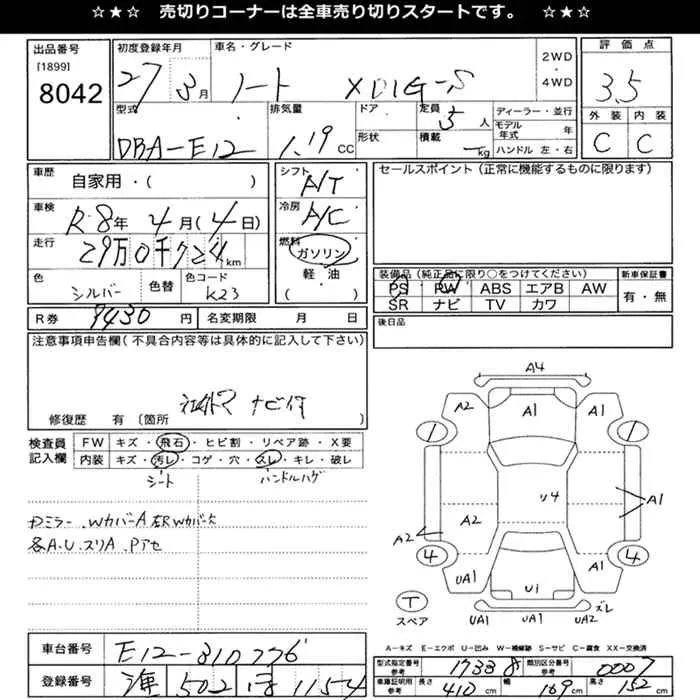 ☆★☆ 売切りコーナーは全車売り切りスタートです。 ☆★☆
出品番号 [1899] 8042
初度登録年月 27 3月
車名・グレード ノート X DIG-S
2WD・4WD
評価点 3.5
外装 内装
C C
型式 DBA-E12
排気量 1.19 CC
ドア
形状
定員 5人
積載 kg
ディーラー・並行
モデル年式 年
ハンドル 左・右
車歴 自家用・( )
車検 R.8年 4月(4日)
走行 29万0千724km
色 シルバー
色替
色コード K23
シフト A/T
冷房 A/C
燃料 ガソリン
軽・油
( )
セールスポイント(正常に機能するものに限ります)
装備品(純正品に限り○をつけてください)
PS PW ABS エアB AW
SR ナビ TV カワ
新車保証書
有・無
R券 9430円
名変期限 月 日
後日品
注意事項申告欄(不具合内容等は具体的に記入して下さい)
ナビ付
修復歴 有(箇所
検査員記入欄
FW キズ・飛石・ヒビ割・リペア跡・X要
内装 キズ・汚レ・コゲ・穴・スレ・キレ・破レ
シート ハンドルハゲ
WカバーA
各A.U.スリA.Pアセ
A4
A2 A1 A1
1 1
U4
A1
A2
A2
4 4
UA1 A1
U1
T
スペア
UA1 UA1 UA2 ズレ
A-キズ E-エクボ U-凹み W-補修跡 S-サビ C-腐食 XX-交換済
車台番号 E12-310776
登録番号 502 ほ 1154
型式指定番号 参考 17338
類別区分番号 参考 0007
車庫証明用 参考 長さ 410cm 幅 169cm 高さ 152cm